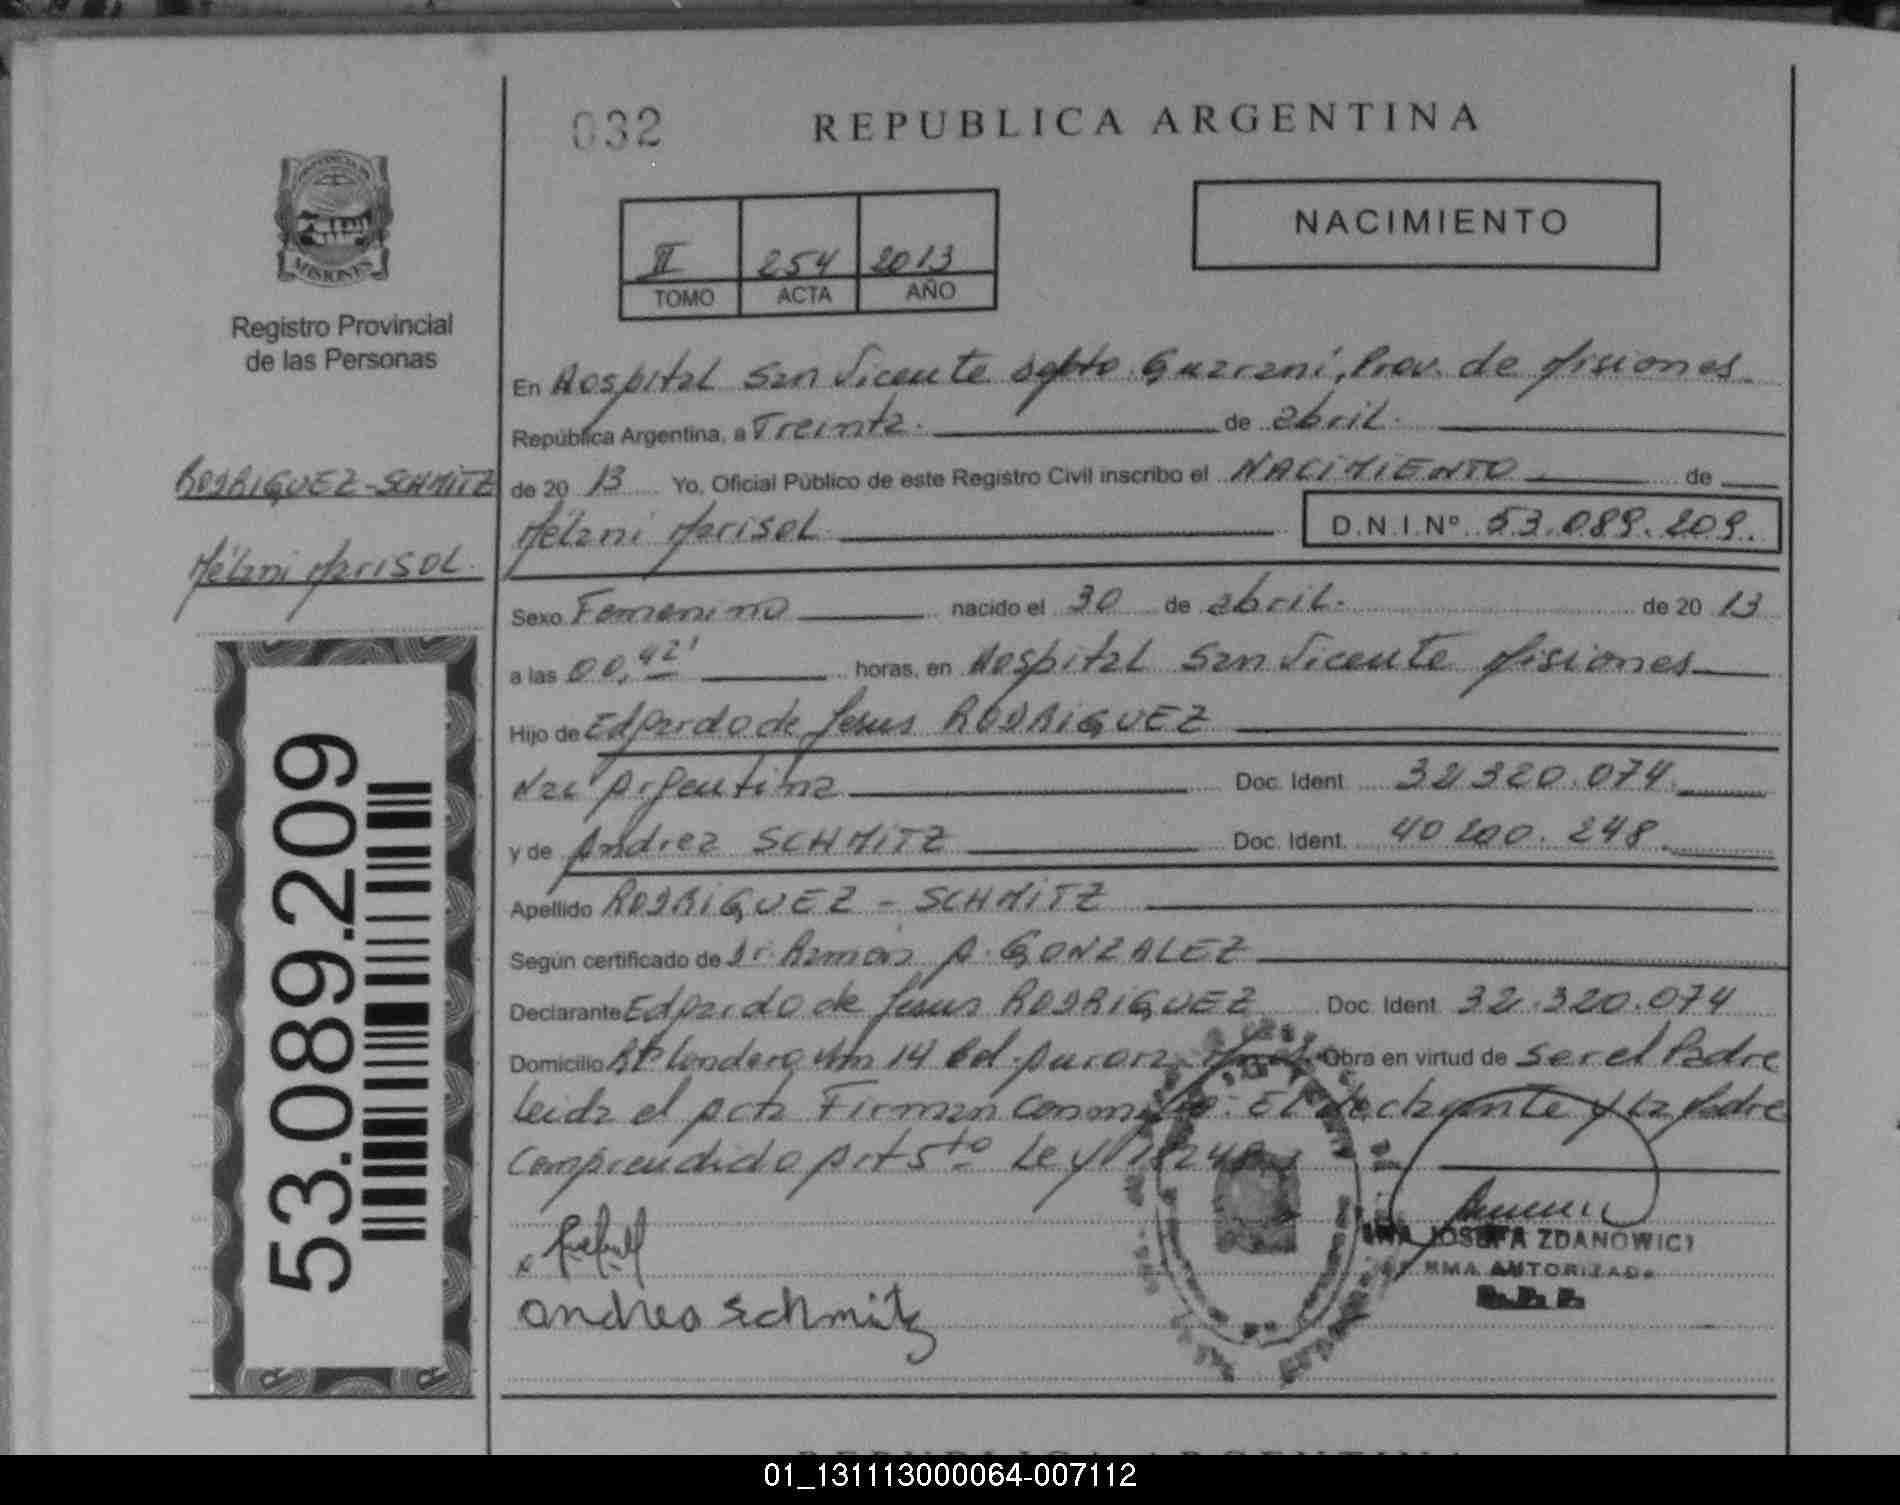 032
REPUBLICA ARGENTINA
NACIMIENTO
II 254 2013
TOMO ACTA AÑO
MISIONES
Registro Provincial
de las Personas
RODRIGUEZ-SCHMITZ
Mélani Marisol.
53.089.209
En Hospital San Vicente Dpto Guaraní, Prov. de Misiones.
República Argentina, a Treinta. de abril.
de 20 13 Yo, Oficial Público de este Registro Civil inscribo el NACIMIENTO de
Mélani Marisol D.N.I.Nº 53.089.209.
Sexo Femenino nacido el 30 de abril. de 20 13
a las 00,42' horas, en Hospital San Vicente Misiones
Hijo de Edgardo de Jesus RODRIGUEZ
Nac Argentina Doc. Ident. 32 320.074.
y de Andrea SCHMITZ Doc. Ident. 40 200. 248.
Apellido RODRIGUEZ - SCHMITZ
Según certificado de Dr. Ramón A. GONZALEZ
Declarante Edgardo de Jesus RODRIGUEZ Doc. Ident. 32.320.074
Domicilio Km 14 Col. Obra en virtud de ser el Padre
Leida el acta Firman El declarante y la Madre
Comprendido Art 5to Ley
andrea schmitz
JOSEFA ZDANOWICZ
FIRMA AUTORIZADA
01_131113000064-007112